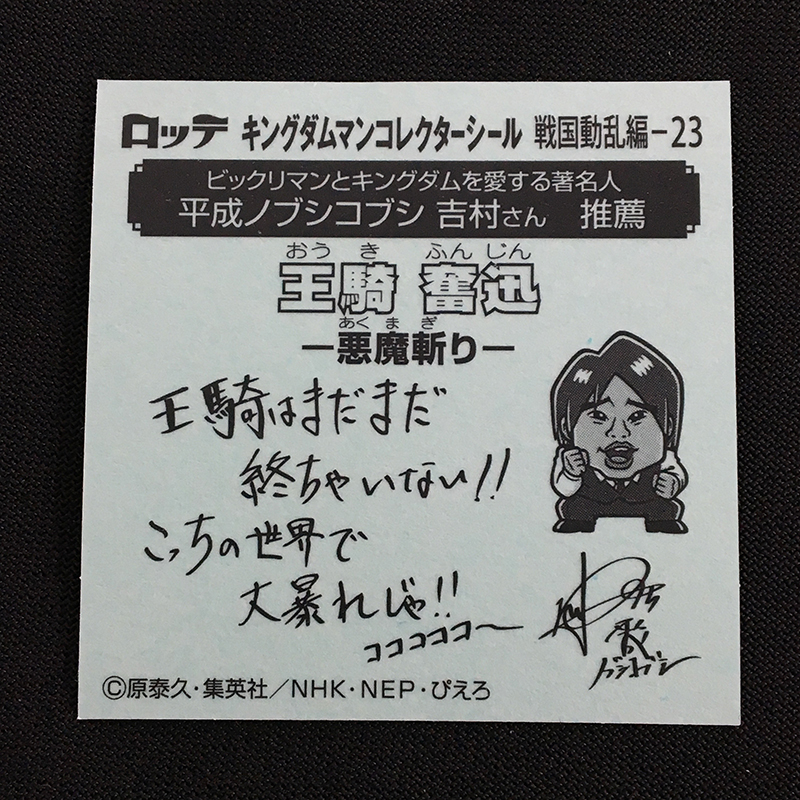 ロッテ キングダムマンコレクターシール 戦国動乱編-23
ビックリマンとキングダムを愛する著名人
平成ノブシコブシ 吉村さん 推薦
おうき ふんじん
王騎 奮迅
あくまぎ
ー悪魔斬りー
王騎はまだまだ
終ちゃいない!!
こっちの世界で
大暴れじゃ!!
ココココココ〜
©原泰久・集英社/NHK・NEP・ぴえろ